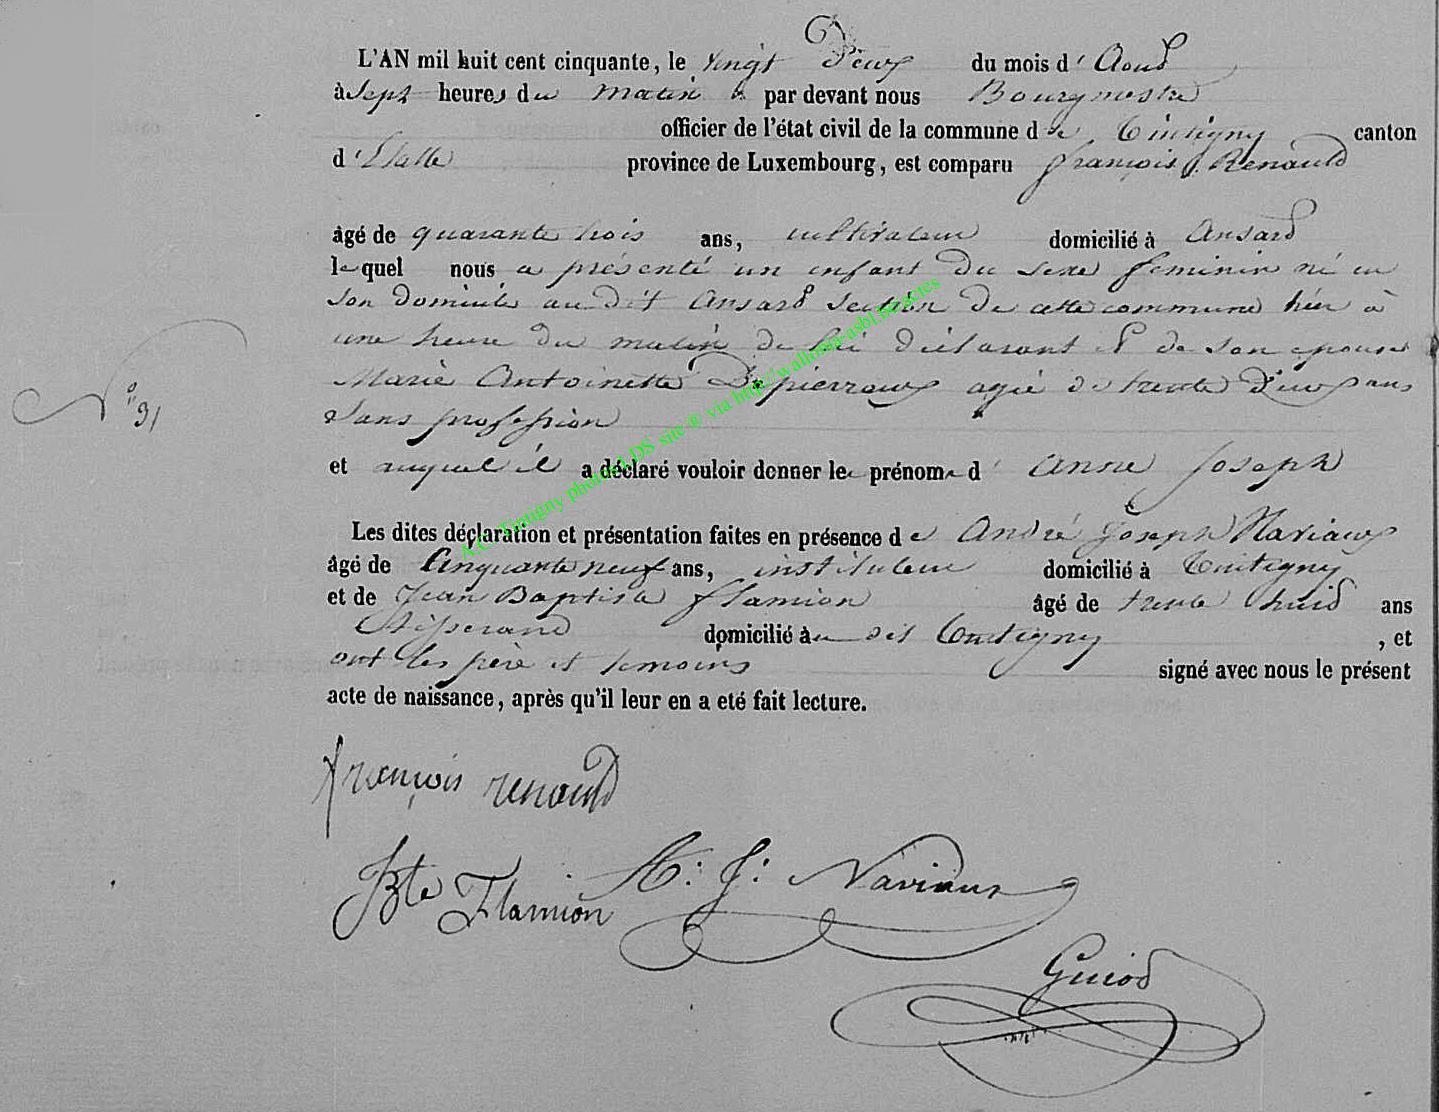 L'AN mil huit cent cinquante, le vingt Deux du mois d' Aoud
à Sept heures du matin par devant nous Bourgmestre
officier de l'état civil de la commune d e Tintigny canton
d' Etalle province de Luxembourg, est comparu françois Renauld
âgé de quarante trois ans, cultivateur domicilié à Ansard
lequel nous a présenté un enfant du sexe feminin né en
son domicile au dit Ansard section de cette commune hier à
une heure du matin de lui déclarant et de son epouse
Marie Antoinette Depierreux agée de trente Deux ans
sans profession
et auquel il a déclaré vouloir donner le prénom d' Anne Joseph
Les dites déclaration et présentation faites en présence d e André Joseph Naviaux
âgé de Cinquante neuf ans, instituteur domicilié à Tintigny
et de Jean Baptiste flamion âgé de trente huid ans
domicilié à u dit Tintigny , et
ont les père et temoins signé avec nous le présent
acte de naissance, après qu'il leur en a eté fait lecture.
N° 91
françois renauld
JBte Flamion A: J: Naviaux
Guiod
A.C. Tintigny photos LDS site ® via http://wallonia-asbl.be/actes